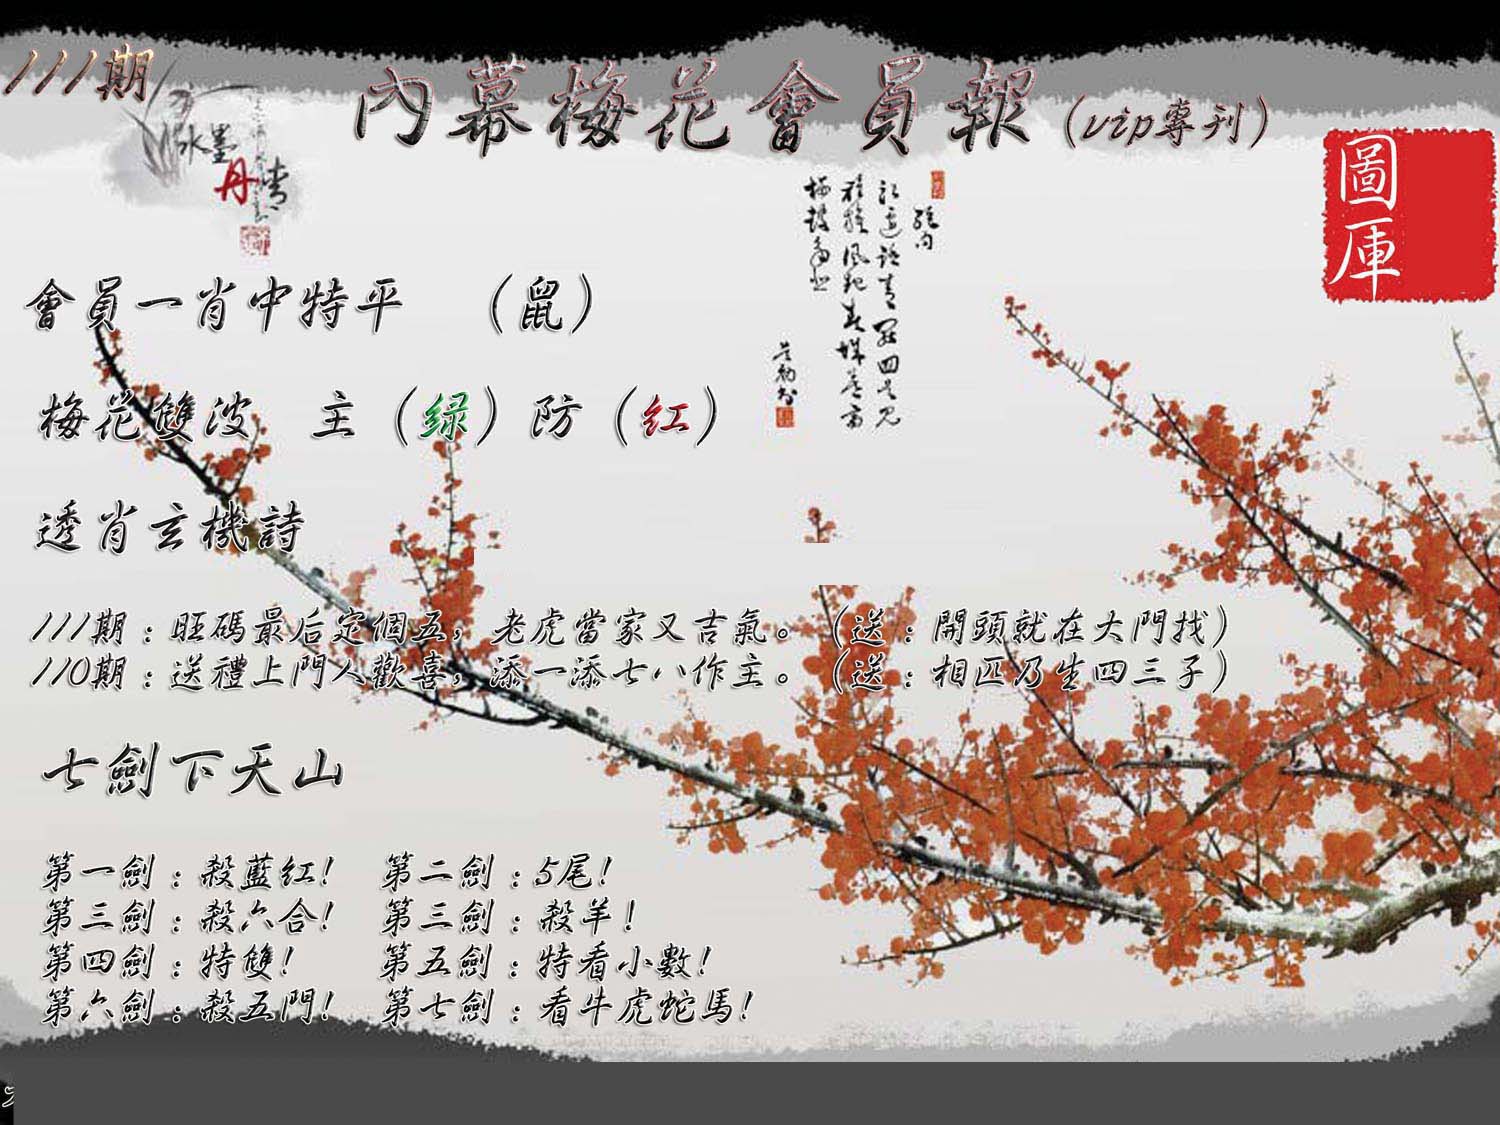 111期
內幕梅花會員報(vip專刊)
水墨
丹青
圖庫
會員一肖中特平 （鼠）
梅花雙波 主（绿）防（红）
透肖玄機詩
111期：旺碼最后定個五，老虎當家又吉氣。（送：開頭就在大門找）
110期：送禮上門人歡喜，添一添七八作主。（送：相匹乃生四三子）
七劍下天山
第一劍：殺藍红! 第二劍：5尾!
第三劍：殺六合! 第三劍：殺羊!
第四劍：特雙! 第五劍：特看小數!
第六劍：殺五門! 第七劍：看牛虎蛇馬!